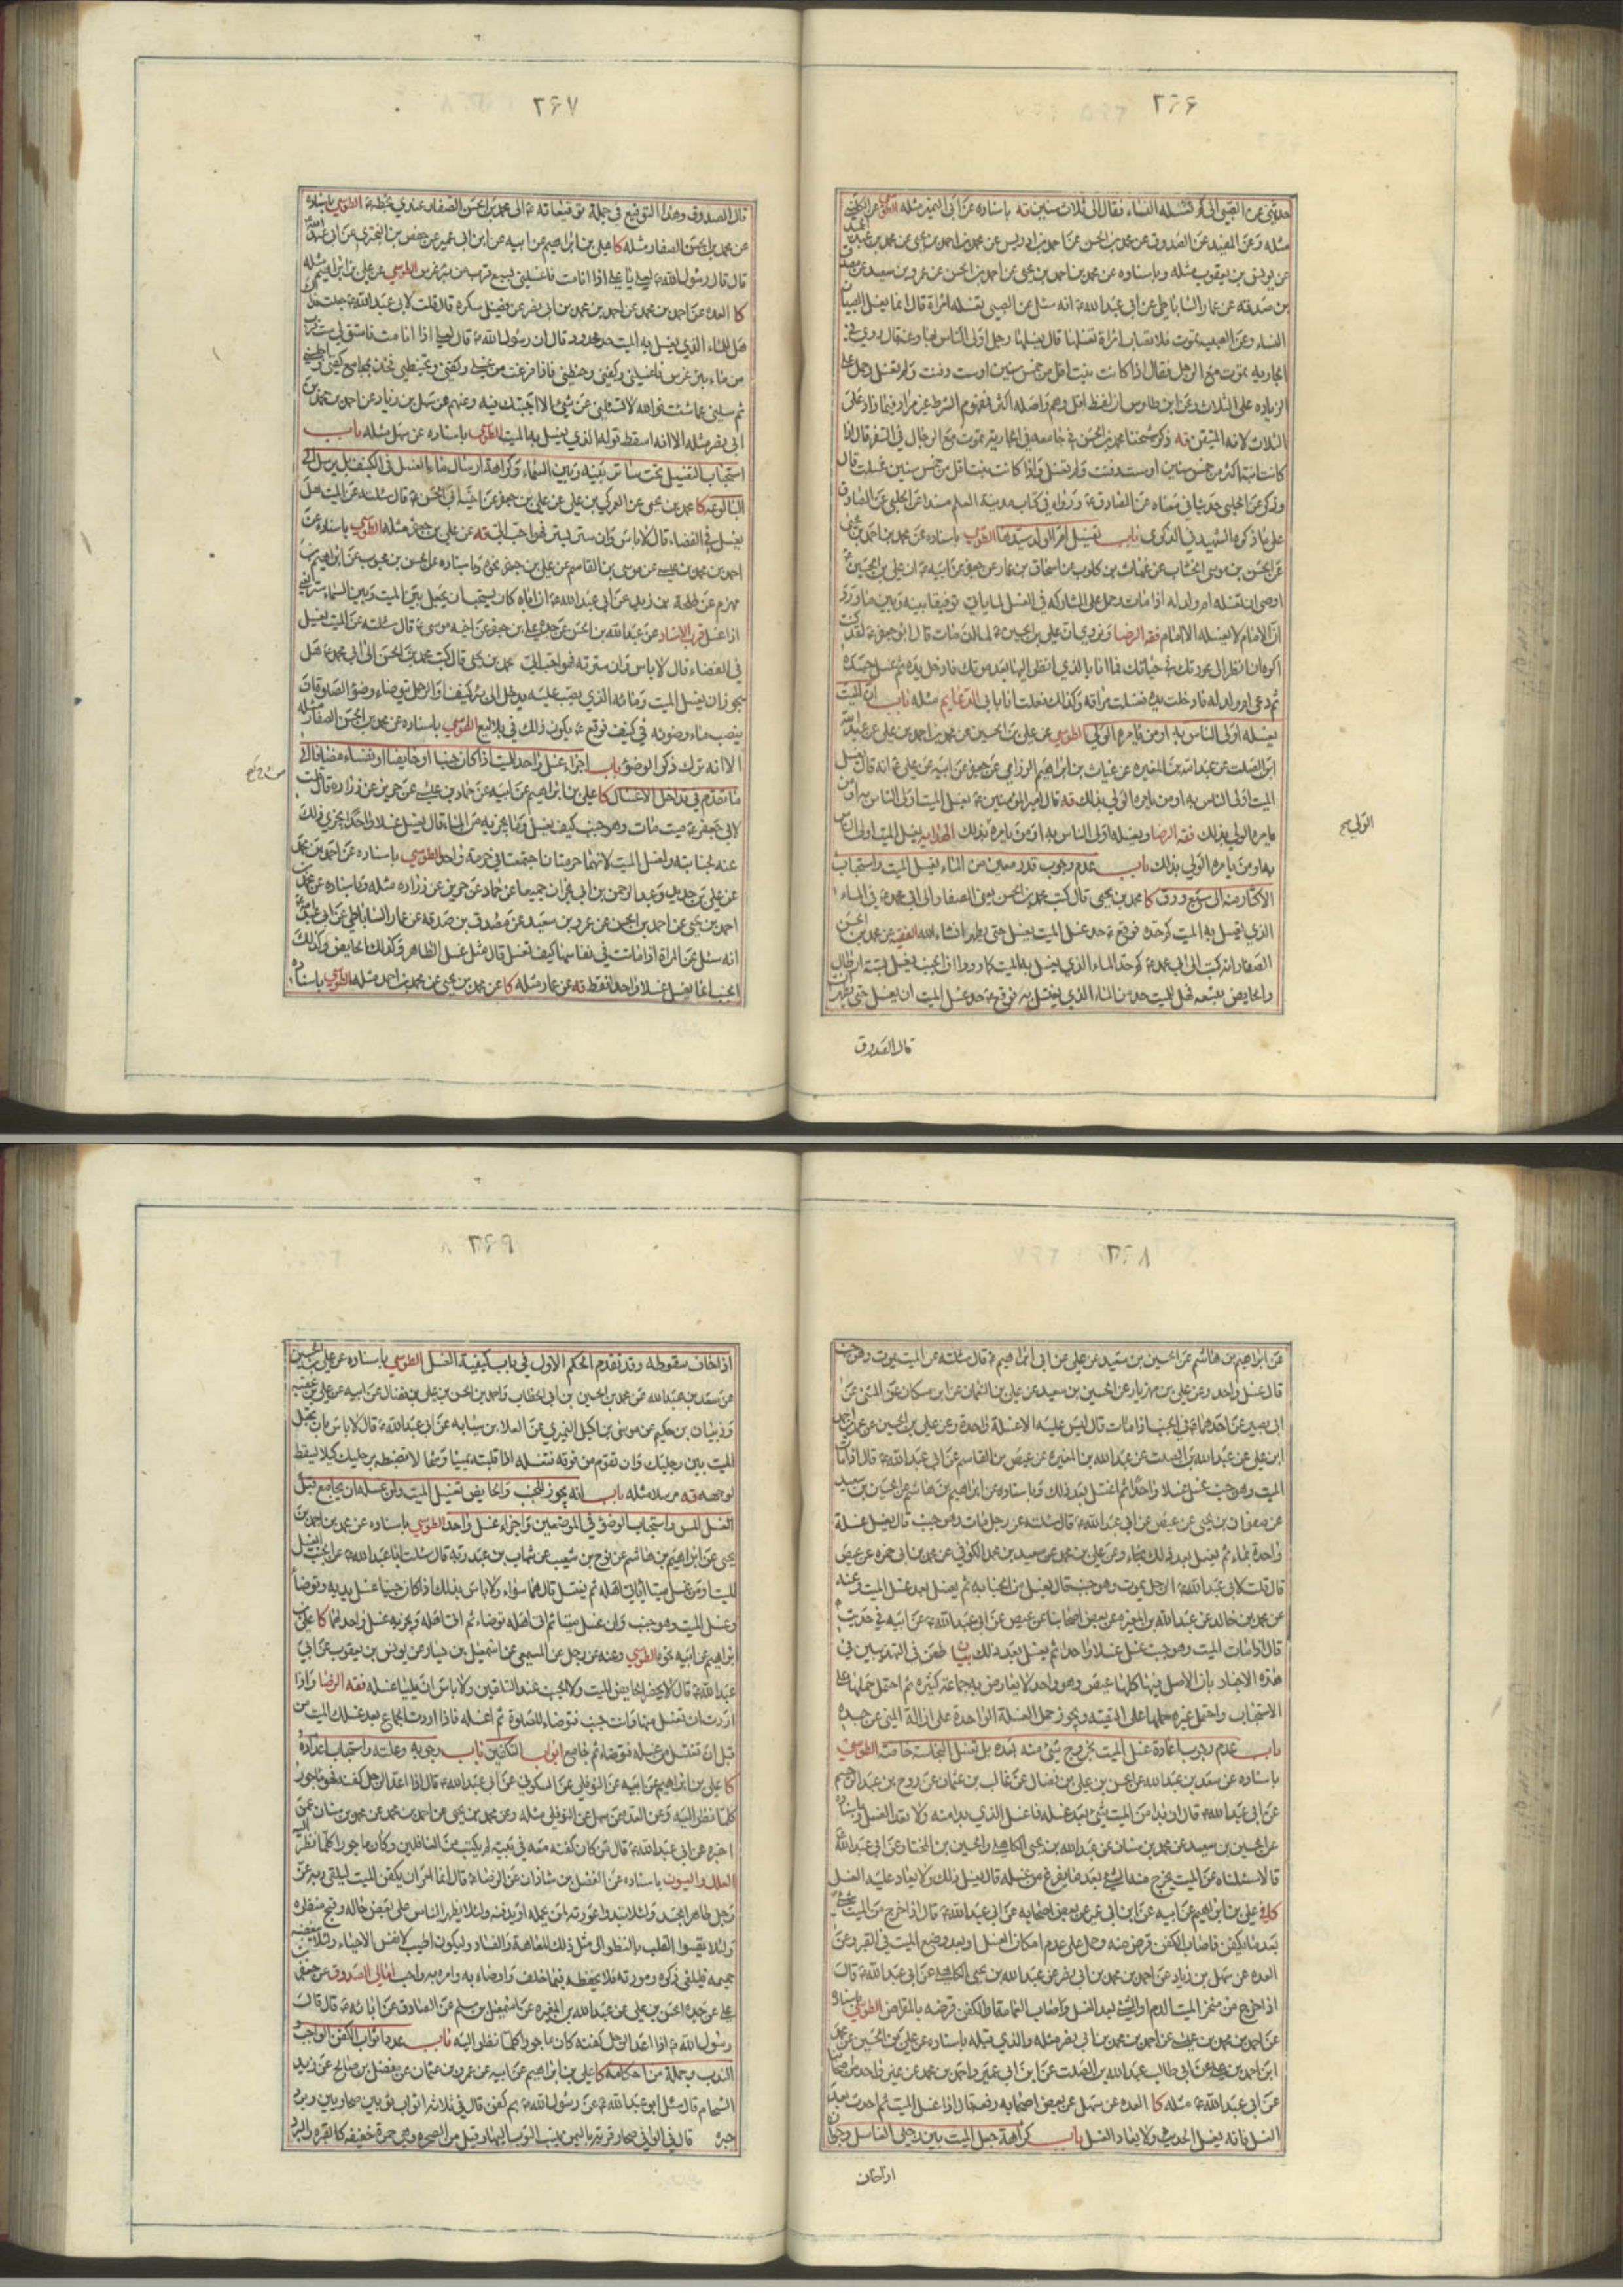 ٢۶۶
حدثني عن الصبي الى كم تغسله النساء فقال الى ثلاث سنين قه باسناده عن ابى النمير مثله الطوسي عن الكليني
مثله وعن المفيد عن الصدوق عن محمد بن الحسن عن احمد بن ادريس عن محمد بن احمد بن يحيى عن محمد بن
عن يونس بن يعقوب مثله وباسناده عن محمد بن احمد بن يحيى عن احمد بن الحسن عن عمرو بن سعيد عن مصدق
بن صدقه عن عمار الساباطي عن ابي عبدالله ع انه سئل عن الصبي تغسله امراة قال انما يغسل الصبيان
النساء وعن الصبيه تموت ولا تصاب امراة تغسلها قال يغسلها رجل اولى الناس بها وعنه قال روي في
الجاريه تموت مع الرجل فقال اذا كانت بنت اقل من خمس سنين او ست دفنت ولم تغسل وحمل على
الزياده على الثلاث وعن ابن طاوس ان لفظ اقل وهم واصله اكثر فمفهوم الشرط عن مراد فيما زاد على
الثلاث لانه المتيقن قه ذكر شيخنا محمد بن الحسن في جامعه في الجارية تموت مع الرجال في السفر قال اذا
كانت ابنة اكثر من خمس سنين او ست دفنت ولم تغسل واذا كانت بنت اقل من خمس سنين غسلت قال
وذكر عن الحلبي حديثا في معناه عن الصادق ع ورواه في كتاب مدينة العلم مسندا عن الحلبي عن الصادق
على ما ذكره الشهيد في الذكرى باب تغسيل ام الولد سيدها الطوسي باسناده عن محمد بن احمد بن يحيى
عن الحسن بن موسى الخشاب عن غياث بن كلوب عن اسحاق بن عمار عن جعفر عن ابيه ع ان علي بن الحسين ع
اوصى ان تغسله ام ولد له اذا مات وحمل على المشاركه في الغسل لما ياتي توفيقا بينه وبين ما ورد
ان الامام لا يغسله الا الامام فقه الرضا ونروي ان علي بن الحسين ع لما ان مات قال ابو جعفر ع لقد كنت
اكره ان انظر الى عورتك في حياتك فما انا بالذي انظر اليها بعد موتك فادخل يده ثم غسل جسده
ثم دعى ام ولد له فادخلت يدها فغسلت مراقه وكذلك فعلت انا بابي الدعايم مثله باب ان الميت
يغسله اولى الناس به او من يامره الولي الطوسي عن علي بن الحسين عن محمد بن احمد بن علي عن عبد الله
ابن الصلت عن عبدالله بن المغيره عن غياث بن ابراهيم الرزامي عن جعفر عن ابيه عن علي ع انه قال يغسل
الميت اولى الناس به او من يامره الولي بذلك قه قال امير المؤمنين ع يغسل الميت اولى الناس به او من
يامره الولي بذلك فقه الرضا ويغسله اولى الناس به او من يامره بذلك الهدايه يغسل الميت اولى الناس
به او من يامره الولي بذلك باب عدم وجوب قدر معين من الماء لغسل الميت واستحباب
الاكثار منه الى سبع قرب كا محمد بن يحيى قال كتب محمد بن الحسن يعني الصفار الى ابي محمد ع في الماء
الذي يغسل به الميت كم حده فوقع ع حد غسل الميت يغسل حتى يطهر ان شاء الله الفقيه عن محمد بن الحسن
الصفار انه كتب الى ابي محمد ع كم حد الماء الذي يغسل به الميت كما رووا ان الجنب يغتسل بستة ارطال
والحايض بتسعه فهل للميت حد من الماء الذي يغسل به فوقع ع حد غسل الميت ان يغسل حتى يطهر
قال الصدوق
الولي صح
٢۶٧
قال الصدوق وهذا التوقيع في جملة توقيعاته ع الى محمد بن الحسن الصفار عندي بخطه ع الطوسي باسناده
عن محمد بن الحسن الصفار مثله كا علي بن ابراهيم عن ابيه عن ابن ابي عمير عن حفص بن البختري عن ابي عبد الله
قال قال رسول الله ص لعلي يا علي اذا انا مت فاغسلني بسبع قرب من بئر غرس الطوسي عن علي بن ابراهيم مثله
كا العده عن احمد بن محمد عن احمد بن محمد بن ابي نصر عن فضيل سكره قال قلت لابي عبدالله ع جعلت فداك
هل للماء الذي يغسل به الميت حد محدود قال ان رسول الله ص قال لعلي اذا انا مت فاستق لي ست قرب
من ماء بئر غرس فاغسلني وكفني وحنطني فاذا فرغت من غسلي وكفني وتحنيطي فخذ بمجامع كفني واجلسني
ثم سلني عما شئت فوالله لا تسئلني عن شئ الا اجبتك فيه وعنهم عن سهل بن زياد عن احمد بن محمد بن
ابي نصر مثله الا انه اسقط قوله الذي يغسل به الميت الطوسي باسناده عن سهل مثله باب
استحباب التغسيل تحت ساتر بينه وبين السماء وكراهة ارسال ماء الغسل في الكنيف بل يرسل الى
البالوعه كا محمد بن يحيى عن العمركي بن علي عن علي بن جعفر عن اخيه ابي الحسن ع قال سئلته عن الميت هل
يغسل في الفضاء قال لا باس وان ستر بستر فهو احب الي قه عن علي بن جعفر مثله الطوسي باسناده عن
احمد بن محمد بن عيسى عن موسى بن القاسم عن علي بن جعفر نحوه وباسناده عن الحسن بن محبوب عن ابراهيم بن
مهزم عن طلحة بن زيد عن ابي عبد الله ع ان اباه كان يستحب ان يجعل بين الميت وبين السماء ستر يعني
اذا غسل قرب الاسناد عن عبدالله بن الحسن عن جده علي بن جعفر عن اخيه موسى ع قال سئلته عن الميت يغسل
في الفضاء قال لا باس وان سترته فهو احب الي محمد بن يحيى قال كتب محمد بن الحسن الى ابي محمد ع هل
يجوز ان يغسل الميت وماؤه الذي يصب عليه يدخل الى بئر كنيف او الرجل يتوضاء وضؤ الصلوة ان
ينصب ماء وضوئه في كنيف فوقع ع يكون ذلك في بلاليع الطوسي باسناده عن محمد بن الحسن الصفار مثله
الا انه ترك ذكر الوضوء باب اجزاء غسل واحد للميت اذا كان جنبا او حايضا او نفساء مضافا الى
ما تقدم في تداخل الاغسال كا علي بن ابراهيم عن ابيه عن حماد بن عيسى عن حريز عن زراره قال قلت
لابي جعفر ع ميت مات وهو جنب كيف يغسل وما يجزيه من الماء قال يغسل غسلا واحدا يجزي ذلك
عنه لجنابته ولغسل الميت لانهما حرمتان اجتمعتا في حرمة واحدة الطوسي باسناده عن احمد بن محمد
عن علي بن حديد وعبد الرحمن بن ابي نجران جميعا عن حماد عن حريز عن زراره مثله وباسناده عن محمد بن
احمد بن يحيى عن احمد بن الحسن عن عمرو بن سعيد عن مصدق بن صدقه عن عمار الساباطي عن ابي عبد الله
انه سئل عن المراة اذا ماتت في نفاسها كيف تغسل قال مثل غسل الطاهر وكذلك الحايض وكذلك
الجنب انما يغسل غسلا واحدا فقط قه عن عمار مثله كا عن محمد بن يحيى عن محمد بن احمد مثله الطوسي باسناده
٢۶٨
عن ابراهيم بن هاشم عن الحسين بن سعيد عن علي عن ابي ابراهيم ع قال سئلته عن الميت يموت وهو جنب
قال غسل واحد وعن علي بن مهزيار عن الحسين بن سعيد عن علي بن النعمان عن ابن مسكان عن المثنى عن
ابي بصير عن احدهما ع في الجنب اذا مات قال ليس عليه الا غسلة واحدة وعن علي بن الحسين عن محمد بن احمد
ابن علي عن عبدالله بن الصلت عن عبد الله بن المغيره عن عيص بن القاسم عن ابي عبدالله ع قال اذا مات
الميت وهو جنب غسل غسلا واحدا ثم اغتسل بعد ذلك وباسناده عن ابراهيم بن هاشم عن الحسين بن سعيد
عن صفوان بن يحيى عن عيص عن ابي عبدالله ع قال سئلته عن رجل مات وهو جنب قال يغسل غسلة
واحدة بماء ثم يغسل بعد ذلك بماء وعن علي بن محمد عن سعيد بن محمد الكوفي عن محمد بن ابي حمزه عن عيص
قال قلت لابي عبدالله ع الرجل يموت وهو جنب قال يغسل من الجنابه ثم يغسل بعد غسل الميت وعنه
عن محمد بن خالد عن عبدالله بن المغيره عن بعض اصحابنا عن عيص عن ابي عبدالله ع عن ابيه في حديث
قال اذا مات الميت وهو جنب غسل غسلا واحدا ثم يغسل بعد ذلك بيان طعن في التهذيبين في
هذه الاخبار بان الاصل فيها كلها عيص وهو واحد لا يعارض به جماعة كثيره ثم احتمل حملها على
الاستحباب واحتمل غيره حملها على التقيه ويجوز حمل الغسلة الواحدة على ازالة المني عن جسده
باب عدم وجوب اعادة غسل الميت بخروج شئ منه بعده بل تغسل النجاسة خاصة الطوسي
باسناده عن سعد بن عبدالله عن الحسن بن علي بن فضال عن غالب بن عثمان عن روح بن عبد الرحيم
عن ابي عبد الله ع قال ان بدا من الميت شئ بعد غسله فاغسل الذي بدا منه ولا تعد الغسل وباسناده
عن الحسين بن سعيد عن محمد بن سنان عن عبدالله بن يحيى الكاهلي والحسين بن المختار عن ابي عبدالله
قالا سئلناه عن الميت يخرج منه الشئ بعد ما يفرغ من غسله قال يغسل ذلك ولا يعاد عليه الغسل
علي بن ابراهيم عن ابيه عن ابن ابي عمير عن بعض اصحابه عن ابي عبدالله ع قال اذا خرج من الميت شئ
بعد ما يكفن فاصاب الكفن قرض منه وحمل على عدم امكان الغسل او بعد وضع الميت في القبر وعن
العده عن سهل بن زياد عن احمد بن محمد بن ابي نصر عن عبد الله بن يحيى الكاهلي عن ابي عبدالله ع قال
اذا خرج من منخر الميت الدم او الشئ بعد الغسل واصاب العمامة او الكفن قرضه بالمقراض الطوسي باسناده
عن احمد بن محمد بن عيسى عن احمد بن محمد بن ابي نصر مثله والذي قبله باسناده عن علي بن الحسين عن محمد
ابن احمد بن علي عن ابي طالب عبدالله بن الصلت عن ابن ابي عمير واحمد بن محمد عن غير واحد من اصحابنا
عن ابي عبدالله ع مثله كا العده عن سهل عن بعض اصحابه رفعه قال اذا غسل الميت ثم احدث بعد
الغسل فانه يغسل الحدث ولا يعاد الغسل باب كراهة جعل الميت بين رجلي الغاسل وجوازه
اذا خاف
٢۶٩
اذا خاف سقوطه وقد تقدم الحكم الاول في باب كيفية الغسل الطوسي باسناده عن علي بن الحسين
عن سعد بن عبدالله عن محمد بن الحسين بن ابي الخطاب واحمد بن الحسن بن علي بن فضال عن ابيه عن علي بن عقبه
وذبيان بن حكيم عن موسى بن اكيل النميري عن العلاء بن سيابه عن ابي عبدالله ع قال لا باس ان يجعل
الميت بين رجليك وان تقوم من فوقه فتغسله اذا قلبته يمينا وشمالا تضبطه برجليك كيلا يسقط
لوجهه قه مرسلا مثله باب انه يجوز للجنب والحايض تغسيل الميت ولمن غسله ان يجامع قبل
الغسل المس واستحباب الوضوء في الموضعين واجزاء غسل واحد الطوسي باسناده عن محمد بن احمد بن
يحيى عن ابراهيم بن هاشم عن نوح بن شعيب عن شهاب بن عبد ربه قال سئلت ابا عبدالله ع عن الجنب ايغسل
الميت او من غسل ميتا اياتي اهله ثم يغتسل قال هما سواء ولا باس بذلك اذا كان جنبا غسل يديه وتوضأ
وغسل الميت وهو جنب وان غسل ميتا ثم اتى اهله توضاء ثم اتى اهله ويجزيه غسل واحد لهما كا علي بن
ابراهيم عن ابيه نحوه الطوسي وعنه عن رجل عن المسمعي عن اسمعيل بن يسار عن يونس بن يعقوب عن ابي
عبدالله ع قال لا يحضر الحايض الميت ولا الجنب عند التلقين ولا باس ان يليا غسله فقه الرضا واذا
اردت ان تغسل ميتا وانت جنب فتوضاء للصلوة ثم اغسله فاذا اردت الجماع بعد غسلك الميت من
قبل ان تغتسل من غسله فتوضاء ثم جامع ابواب التكفين باب وجوبه وعلته واستحباب اعداده
كا علي بن ابراهيم عن ابيه عن النوفلي عن السكوني عن ابي عبدالله ع قال اذا اعد الرجل كفنه فهو ماجور
كلما نظر اليه وعن العده عن سهل عن النوفلي مثله وعن محمد بن يحيى عن احمد بن محمد عن محمد بن سنان عمن
اخبره عن ابي عبدالله ع قال من كان كفنه معه في بيته لم يكتب من الغافلين وكان ماجورا كلما نظر اليه
العلل والعيون باسناده عن الفضل بن شاذان عن الرضا ع قال انما امر ان يكفن الميت ليلقى ربه عز
وجل طاهر الجسد ولئلا تبدو عورته لمن يحمله او يدفنه ولئلا يظهر الناس على بعض حاله وقبح منظره
ولئلا يقسو القلب بالنظر الى مثل ذلك للعاهة والفساد وليكون اطيب لانفس الاحياء ولئلا يبغضه
حميمه فيلغي ذكره ومودته فلا يحفظه فيما خلف واوصاه به وامره به واحب امالي الصدوق عن جعفر بن
علي عن جده الحسن بن علي عن عبدالله بن المغيره عن اسمعيل بن مسلم عن الصادق عن ابائه ع قال قال
رسول الله ص اذا اعد الرجل كفنه كان ماجورا كلما نظر اليه باب عدد اثواب الكفن الواجب و
الندب وجملة من احكامه كا علي بن ابراهيم عن ابيه عن عمرو بن عثمان عن مفضل بن صالح عن زيد
الشحام قال سئل ابو عبدالله ع عن رسول الله ص بم كفن قال في ثلاثة اثواب ثوبين صحاريين وبرد
حبره قال في الوافي صحار قرية باليمن ينسب الثوب اليها وقيل من الصحره وهي حمرة خفيفه كالغبره والبرد